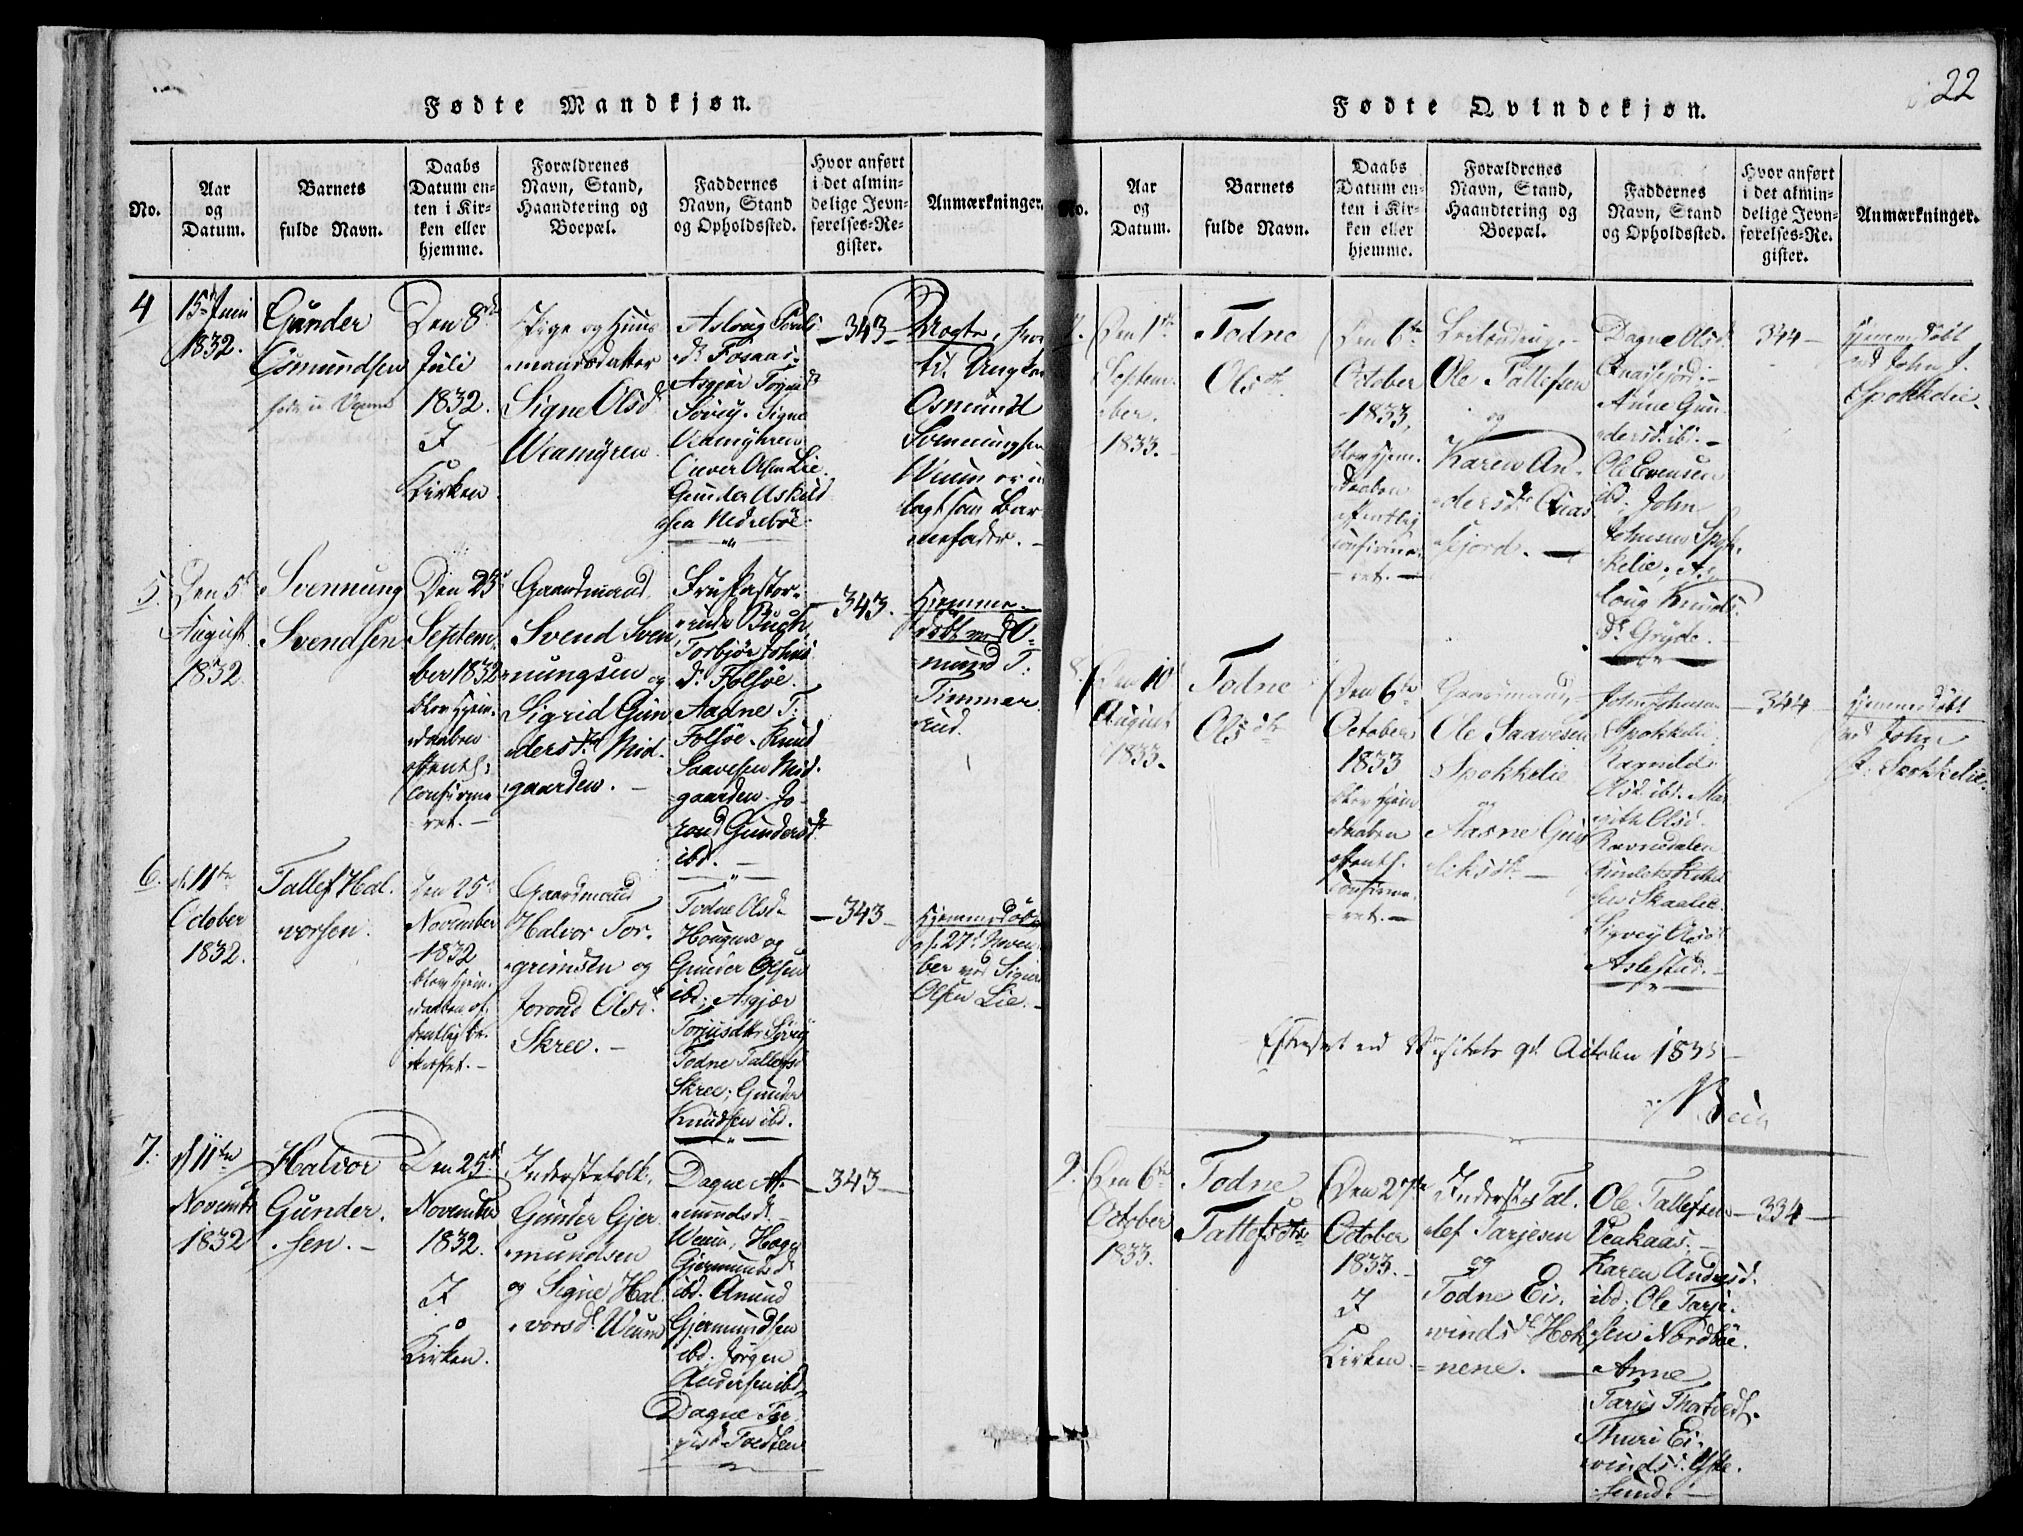 22
Fødte Mandkjøn.
No.
Aar
og
Datum.
Barnets
fulde Navn.
Daabs
Datum en-
ten i Kir-
ken eller
hjemme.
Forældrenes
Navn, Stand,
Haandtering og
Boepæl.
Faddernes
Navn, Stand
og Opholdssted.
Hvor anført
i det almin-
delige Jevn-
førelses-Re-
gister.
Anmærkninger.
4
15 Juni
1832.
Gunder
Osmundsen
Den 8de
Juli
1832.
I
Kirken
Pige og Huus
mandsdatter
Signe Olsdr
Weamyren
Asloug
dr Fosaas.
Asgjær
Signe
Weamyren
Oluer Olsen Lie.
Gunder Askild
sen Nedrebøe.
343
til Ungkar
Osmund
Svenningsen
Weum er ud
lagt som Bar
nefader.
5.
Den 5te
August
1832.
Svennung
Svendsen
Den 23
Septem
ber 1832
blev Hjem
daaben
offentl:
Confirme
ret.
Gaardmand
Svend Sven
nungsen og
Sigrid Gun
dersdr Mid
gaarden.
Fru Pastor
inde Bugh,
Torbjør Johns
dr Folsøe.
Aadne T:
Folsøe. Knud
Saavesen Mid
gaarden. Jo
rond Gundersdr
ibd.
343.
Hjemme
døbt ved O
mund T:
Timmer
rud.
6.
d. 11te
October
1832.
Tallef Hal
vorsen.
Den 25
November
1832
blev Hjem
daaben of
fentlig be
kræftet.
Gaardmand
Halvor Tor
grimsen og
Jorond Olsdr
Skree.
Todne Olsdr
Hougene og
Gunder Olsen
ibd; Asgjær
Torjusdtr
Todne Tallefsd
Skree; Gunder
Knudsen ibd.
343
Hjemmedøbt
d. 27. Novem
ber ved Signe
Olsen Lie.
7.
d 11te
Novembr
1832
Halvor
Gunder
sen.
Den 25de
November
1832.
I
Kirken.
Inderstefolk.
Gunder Gjer
mundsen
og Signe Hal
vorsdr Weum
Dagne A
mundsdr
Weum, Hæge
Gjermundsdr
ibd. Amund
Gjermundsen
ibd. Jørgen
Andersen ibd
Dagne Tor
343
Fødte Qvindekjøn.
No.
Aar
og
Datum.
Barnets
fulde Navn.
Daabs
Datum en-
ten i Kir-
ken eller
hjemme.
Forældrenes
Navn, Stand,
Haandtering og
Boepæl.
Faddernes
Navn, Stand
og Opholdssted.
Hvor anført
i det almin-
delige Jevn-
førelses-Re-
gister.
Anmærkninger.
7.
Den 1te
Septem
ber.
1833.
Todne
Olsdtr
Den 6te
October
1833.
blev Hjem
daaben
offentlig
Confirme
ret.
Ole Tallefsen
og
Karen An
dersdr
fjord.
Dagne Olsd
Anne Gun
dersd. ibd.
Ole Evensen
ibd; John
Johnsen Spok
kelie; As
loug Knuds
dr Gryde.
344
Hjemmedøbt
ved John J.
Spokkelie.
8.
Den 10
August
1833.
Todne
Olsdtr
Den 6te
October
1833
blev Hjem
daaben
offentl.
Confirme
ret.
Gaardmand
Ole Saavesen
Spokkelie
og
Aasne Gun
leksdtr
John Johnsen
Spokkelie.
Ragnild
Olsd. ibd. Mar
rith Olsd.
Ravnedalen
Gunlek Kittel
sen Skaalie.
Sigvej Olsd
Aslestad.
344
Hjemmedøbt
ved John
J. Spokkelie.
Efterseet ved Visitats 9de October 1833
9.
Den 6te
October
1833.
Todne
Tallefsdtr
Den 27de
October
1833.
I
Kirken
Inderste Tal
lef Tarjesen
og
Todne Ei
vindsdr Høk
nene.
Ole Tallefsen
Veakaas.
Karen Andersd.
ibd; Ole Tarje
sen Nordbøe.
Anne
Tarjes
Thuri Ei
vindsd.
sund.
334